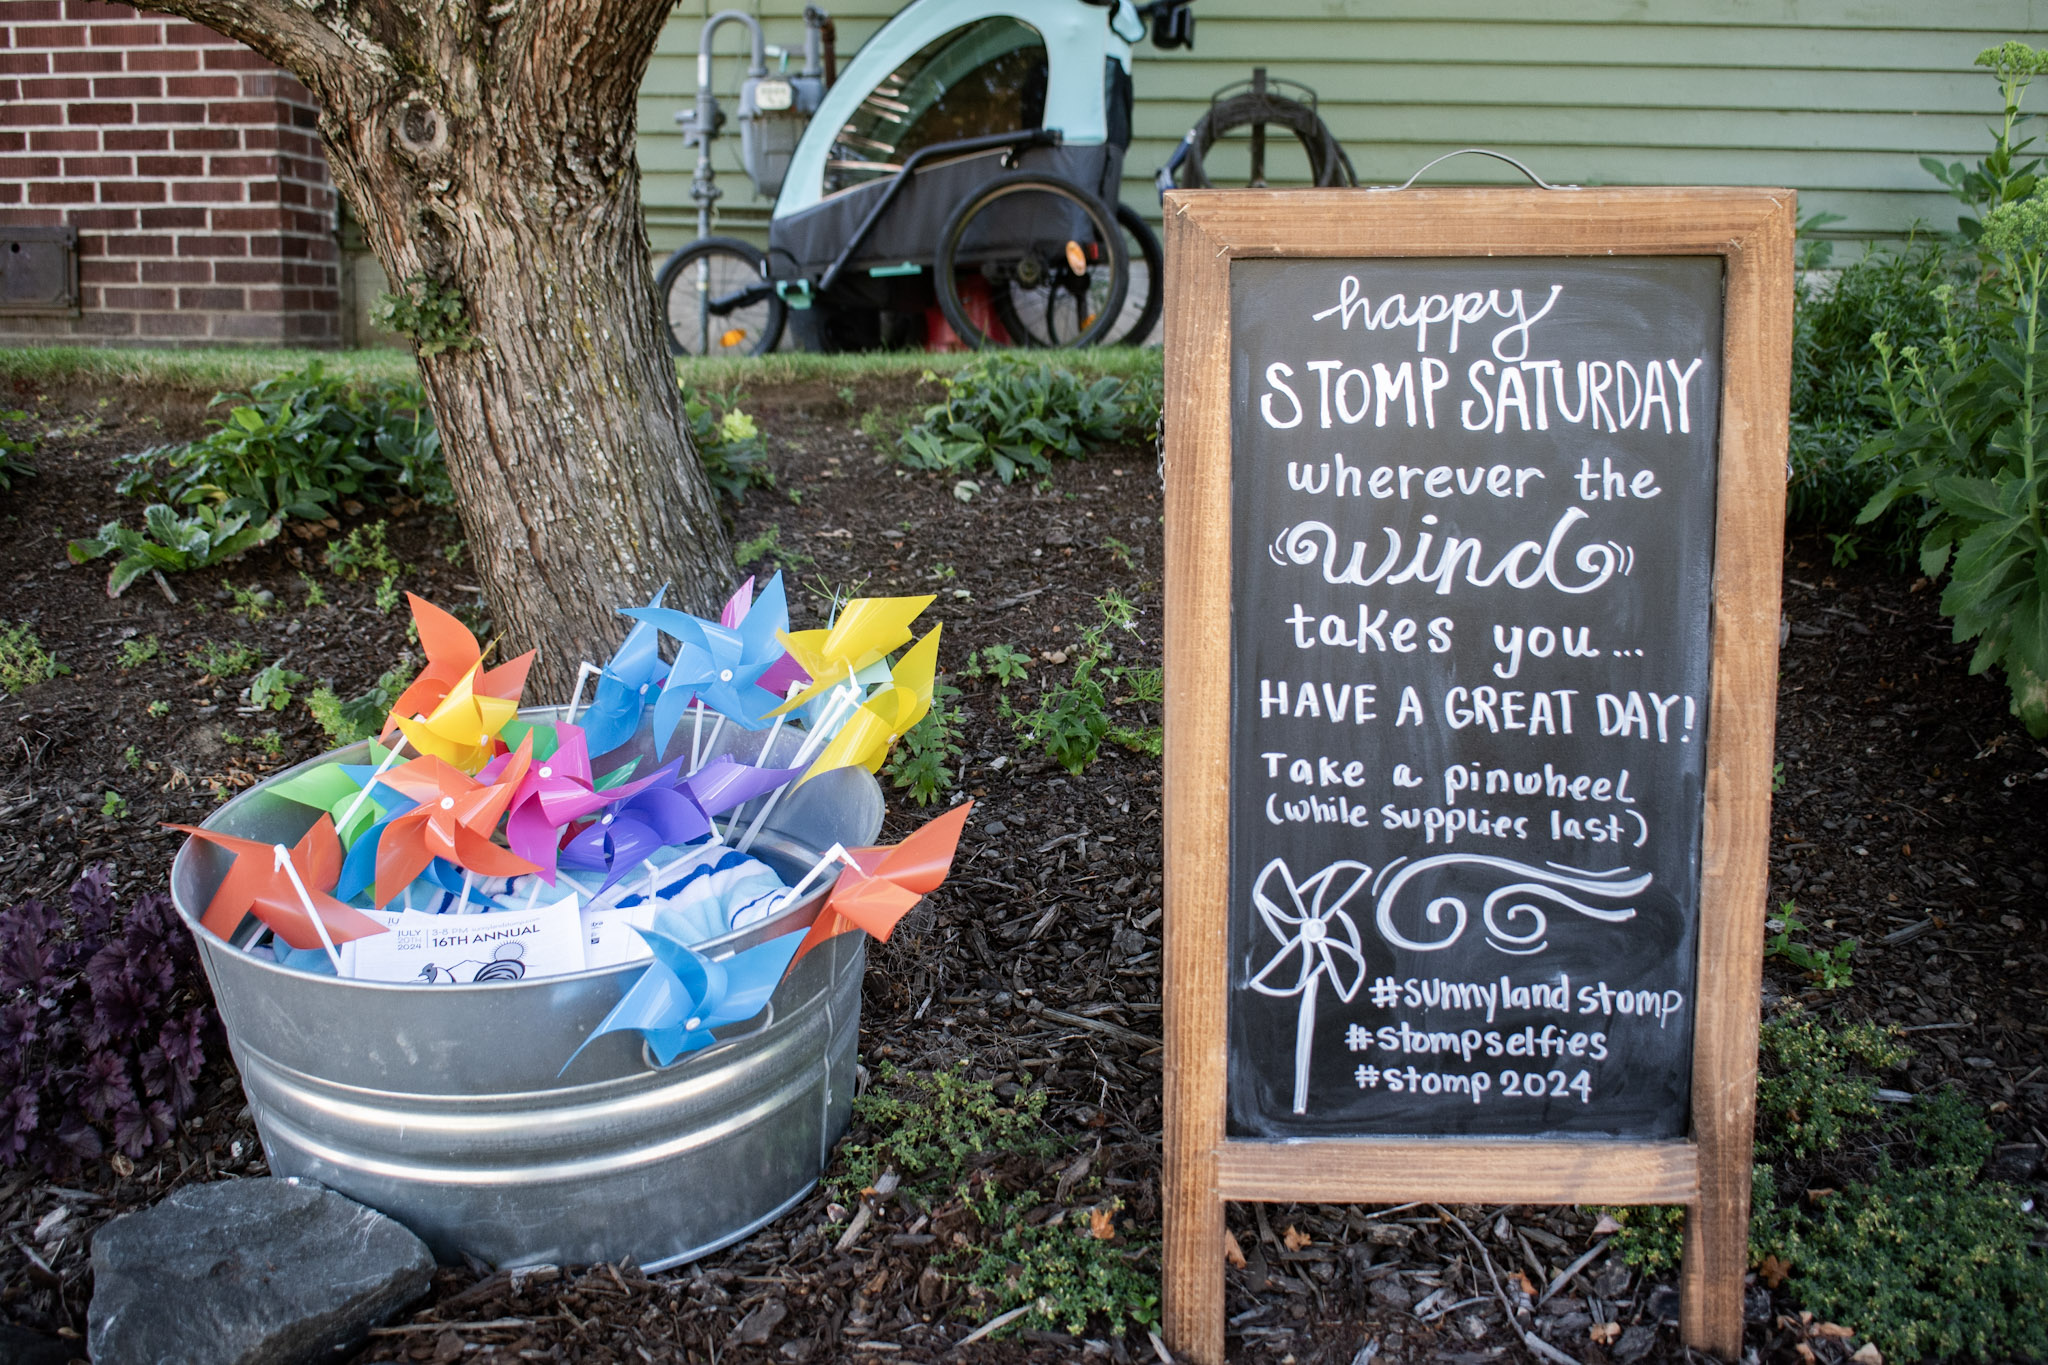 happy
STOMP SATURDAY
wherever the
wind
takes you...
HAVE A GREAT DAY!
Take a pinwheel
(while supplies last)
#sunnylandstomp
#stompselfies
#stomp2024
JULY
20TH
2024
3-8 PM sunnylandstomp.com
16TH ANNUAL